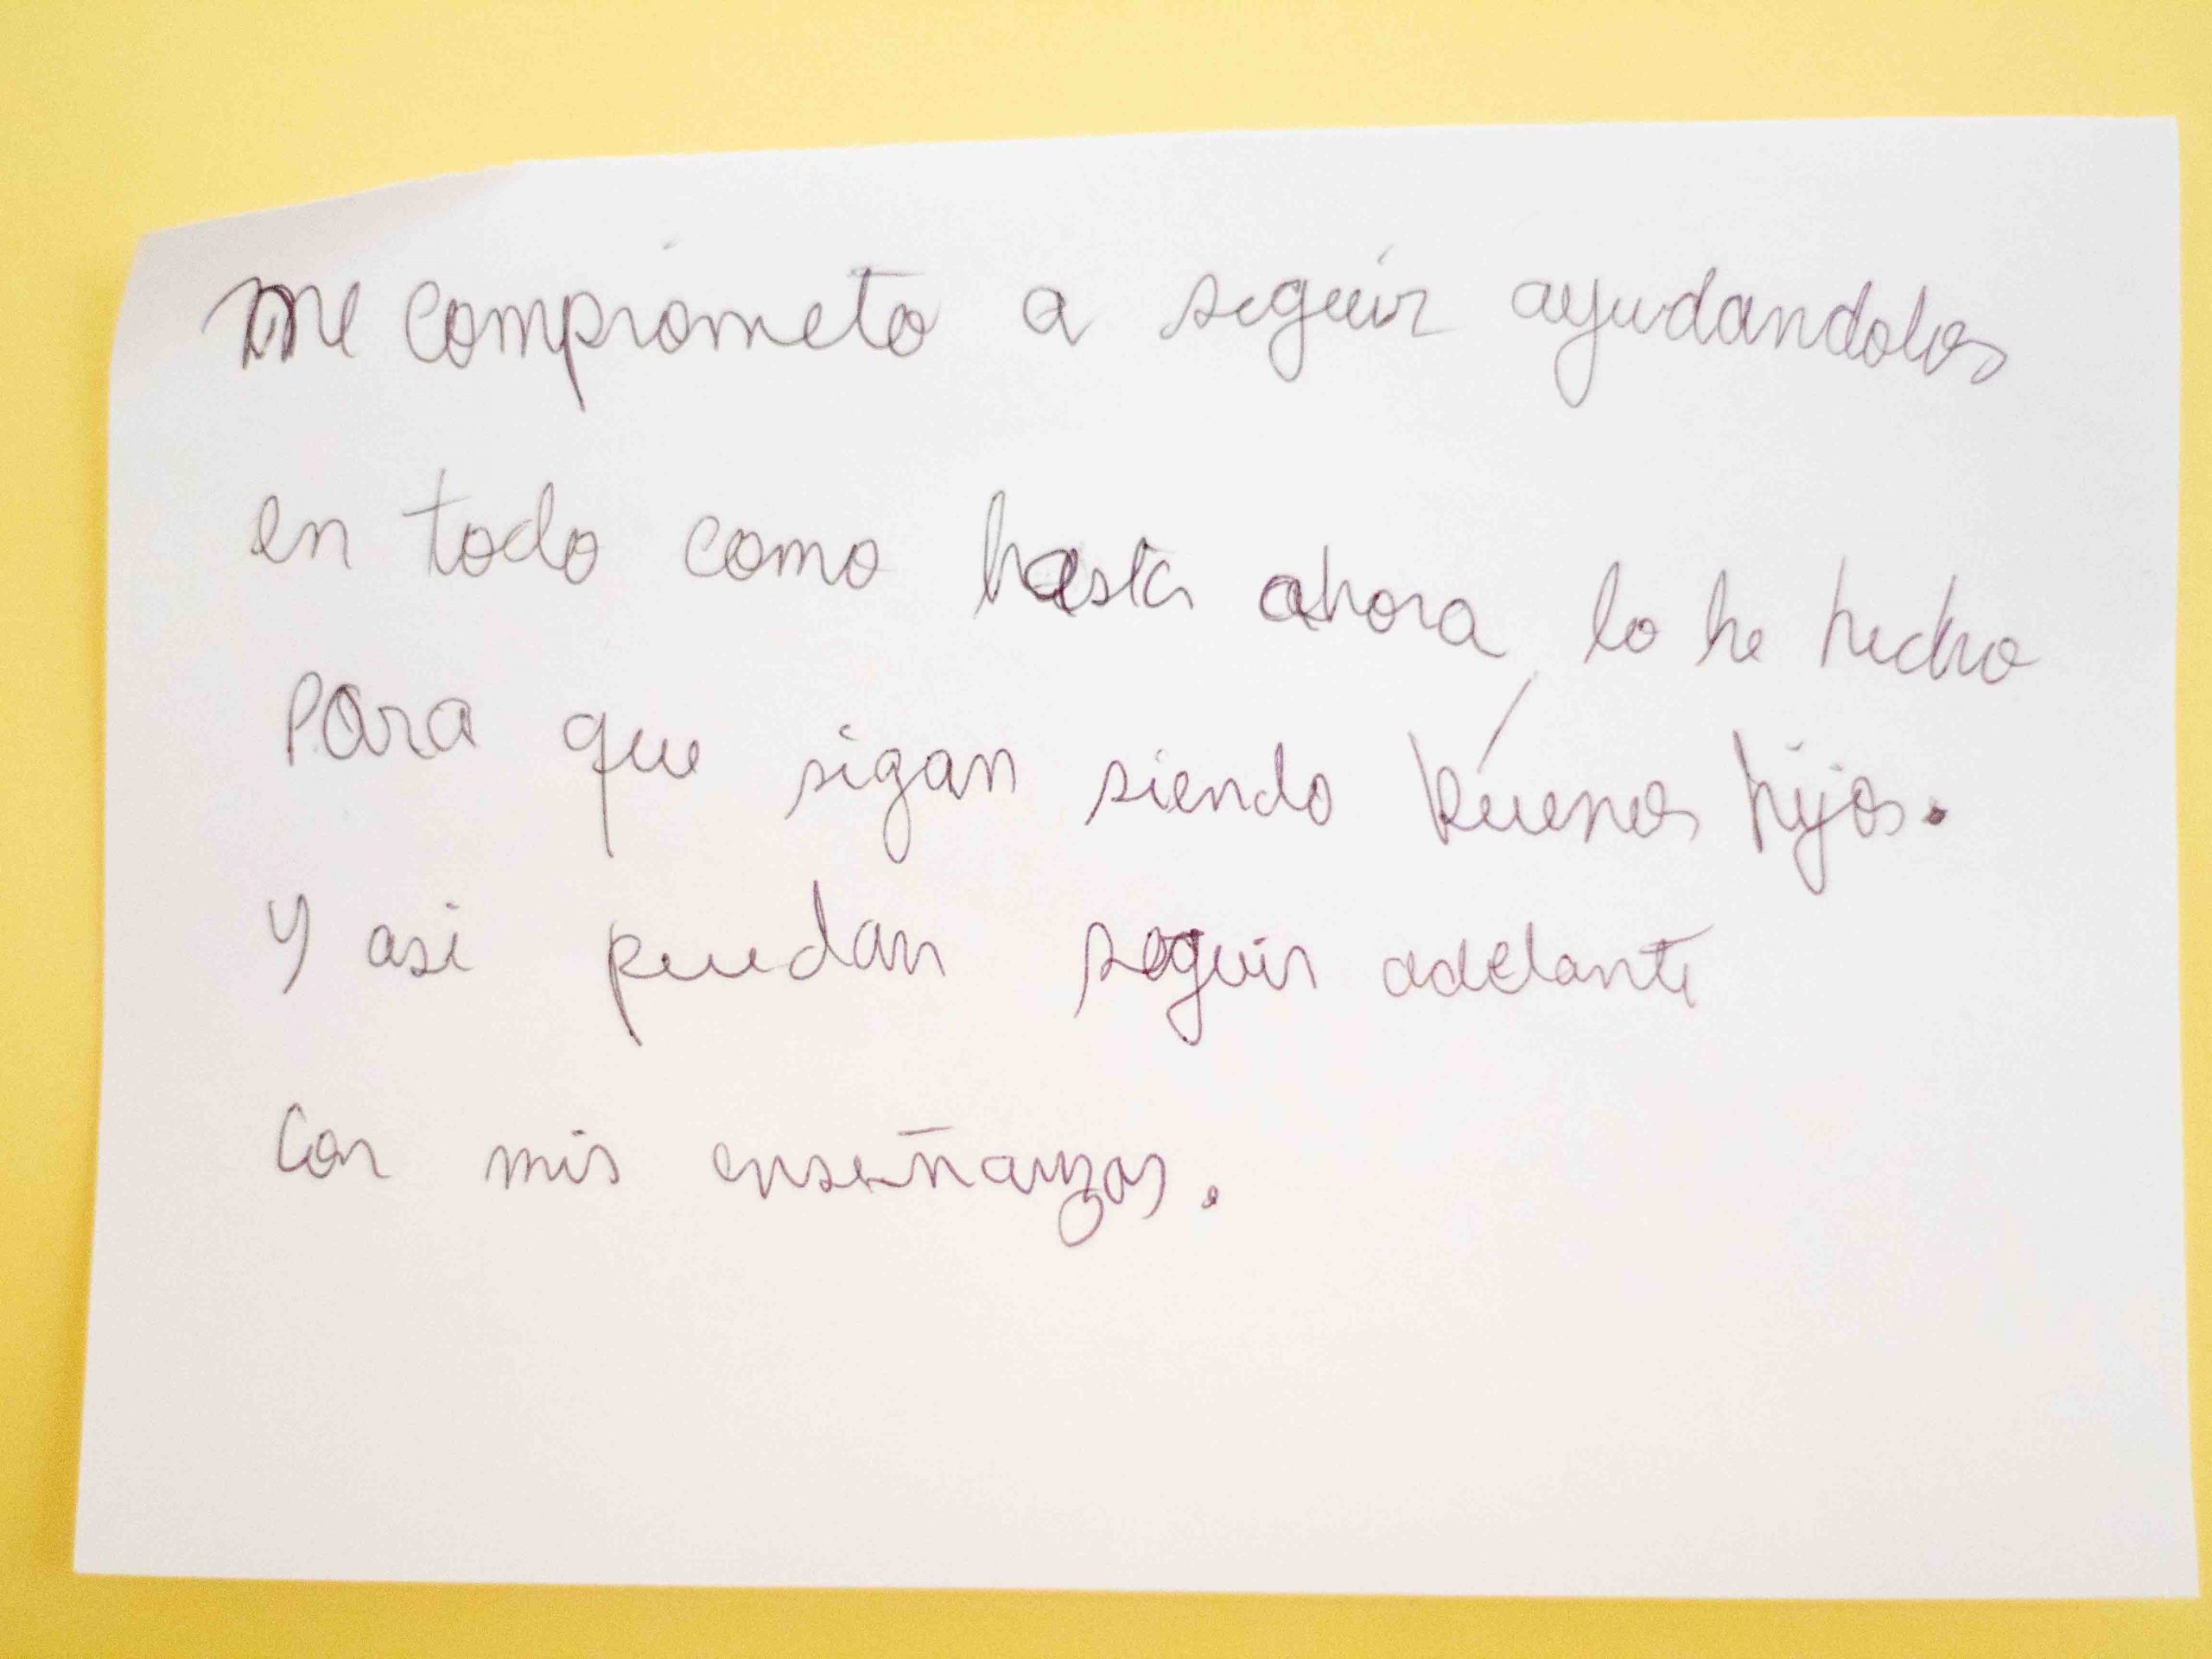 me comprometo a seguir ayudandolos
en todo como hasta ahora lo he hecho
para que sigan siendo buenos hijos.
y asi puedan seguir adelante
con mis enseñanzas.